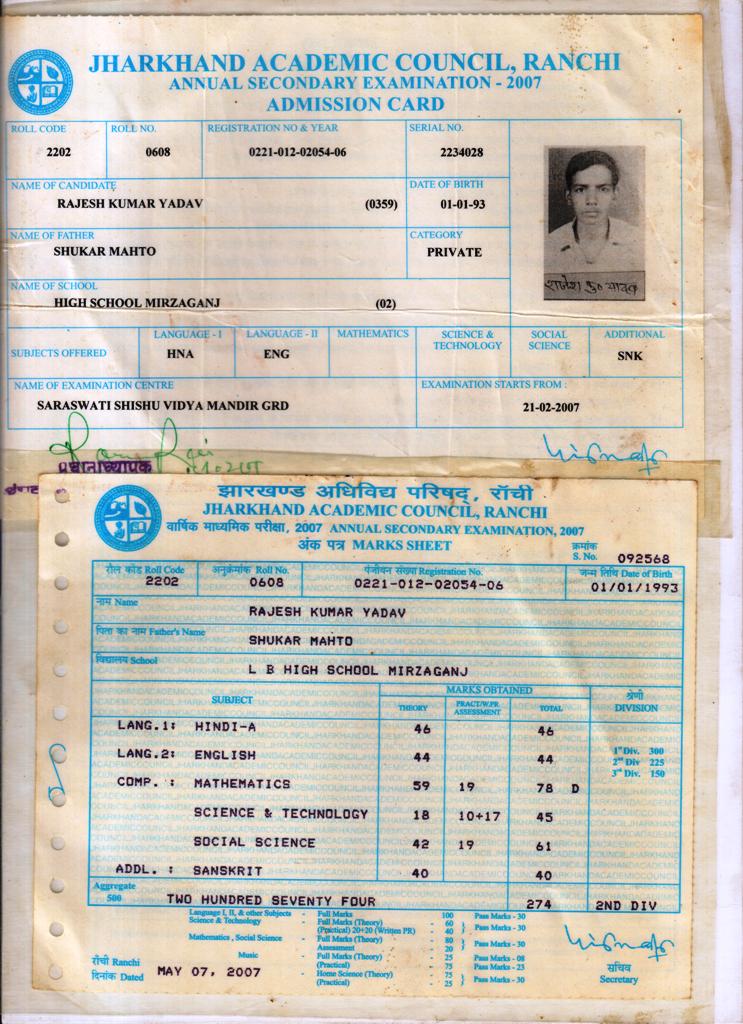 JHARKHAND ACADEMIC COUNCIL, RANCHI
ANNUAL SECONDARY EXAMINATION - 2007
ADMISSION CARD
ROLL CODE ROLL NO. REGISTRATION NO & YEAR SERIAL NO.
2202 0608 0221-012-02054-06 2234028
NAME OF CANDIDATE DATE OF BIRTH
RAJESH KUMAR YADAV (0359) 01-01-93
NAME OF FATHER CATEGORY
SHUKAR MAHTO PRIVATE
राजेश कु० यादव
NAME OF SCHOOL
HIGH SCHOOL MIRZAGANJ (02)
SUBJECTS OFFERED LANGUAGE - I LANGUAGE - II MATHEMATICS SCIENCE & TECHNOLOGY SOCIAL SCIENCE ADDITIONAL
HNA ENG SNK
NAME OF EXAMINATION CENTRE EXAMINATION STARTS FROM :
SARASWATI SHISHU VIDYA MANDIR GRD 21-02-2007
प्रधानाध्यापक
झारखण्ड अधिविद्य परिषद्, राँची
JHARKHAND ACADEMIC COUNCIL, RANCHI
वार्षिक माध्यमिक परीक्षा, 2007 ANNUAL SECONDARY EXAMINATION, 2007
अंक पत्र MARKS SHEET
क्रमांक
S. No. 092568
रौल कोड Roll Code अनुक्रमांक Roll No. पंजीयन संख्या Registration No. जन्म तिथि Date of Birth
2202 0608 0221-012-02054-06 01/01/1993
नाम Name RAJESH KUMAR YADAV
पिता का नाम Father's Name SHUKAR MAHTO
विद्यालय School L B HIGH SCHOOL MIRZAGANJ
SUBJECT MARKS OBTAINED श्रेणी
THEORY PRACT/W.PR ASSESSMENT TOTAL DIVISION
LANG.1: HINDI-A 46 46
LANG.2: ENGLISH 44 44
1st Div. 300
2nd Div 225
3rd Div. 150
COMP. : MATHEMATICS 59 19 78 D
SCIENCE & TECHNOLOGY 18 10+17 45
SOCIAL SCIENCE 42 19 61
ADDL. : SANSKRIT 40 40
Aggregate
500 TWO HUNDRED SEVENTY FOUR 274 2ND DIV
Language I, II, & other Subjects - Full Marks 100 Pass Marks - 30
Science & Technology - Full Marks (Theory) - 60
(Practical) 20+20 (Written PR) - 40 } Pass Marks - 30
Mathematics , Social Science - Full Marks (Theory) - 80
Assessment - 20 } Pass Marks - 30
Music - Full Marks (Theory) - 25 Pass Marks - 08
(Practical) - 75 Pass Marks - 23
- Home Science (Theory) - 75
(Practical) - 25 } Pass Marks - 30
राँची Ranchi
दिनांक Dated MAY 07, 2007
सचिव
Secretary